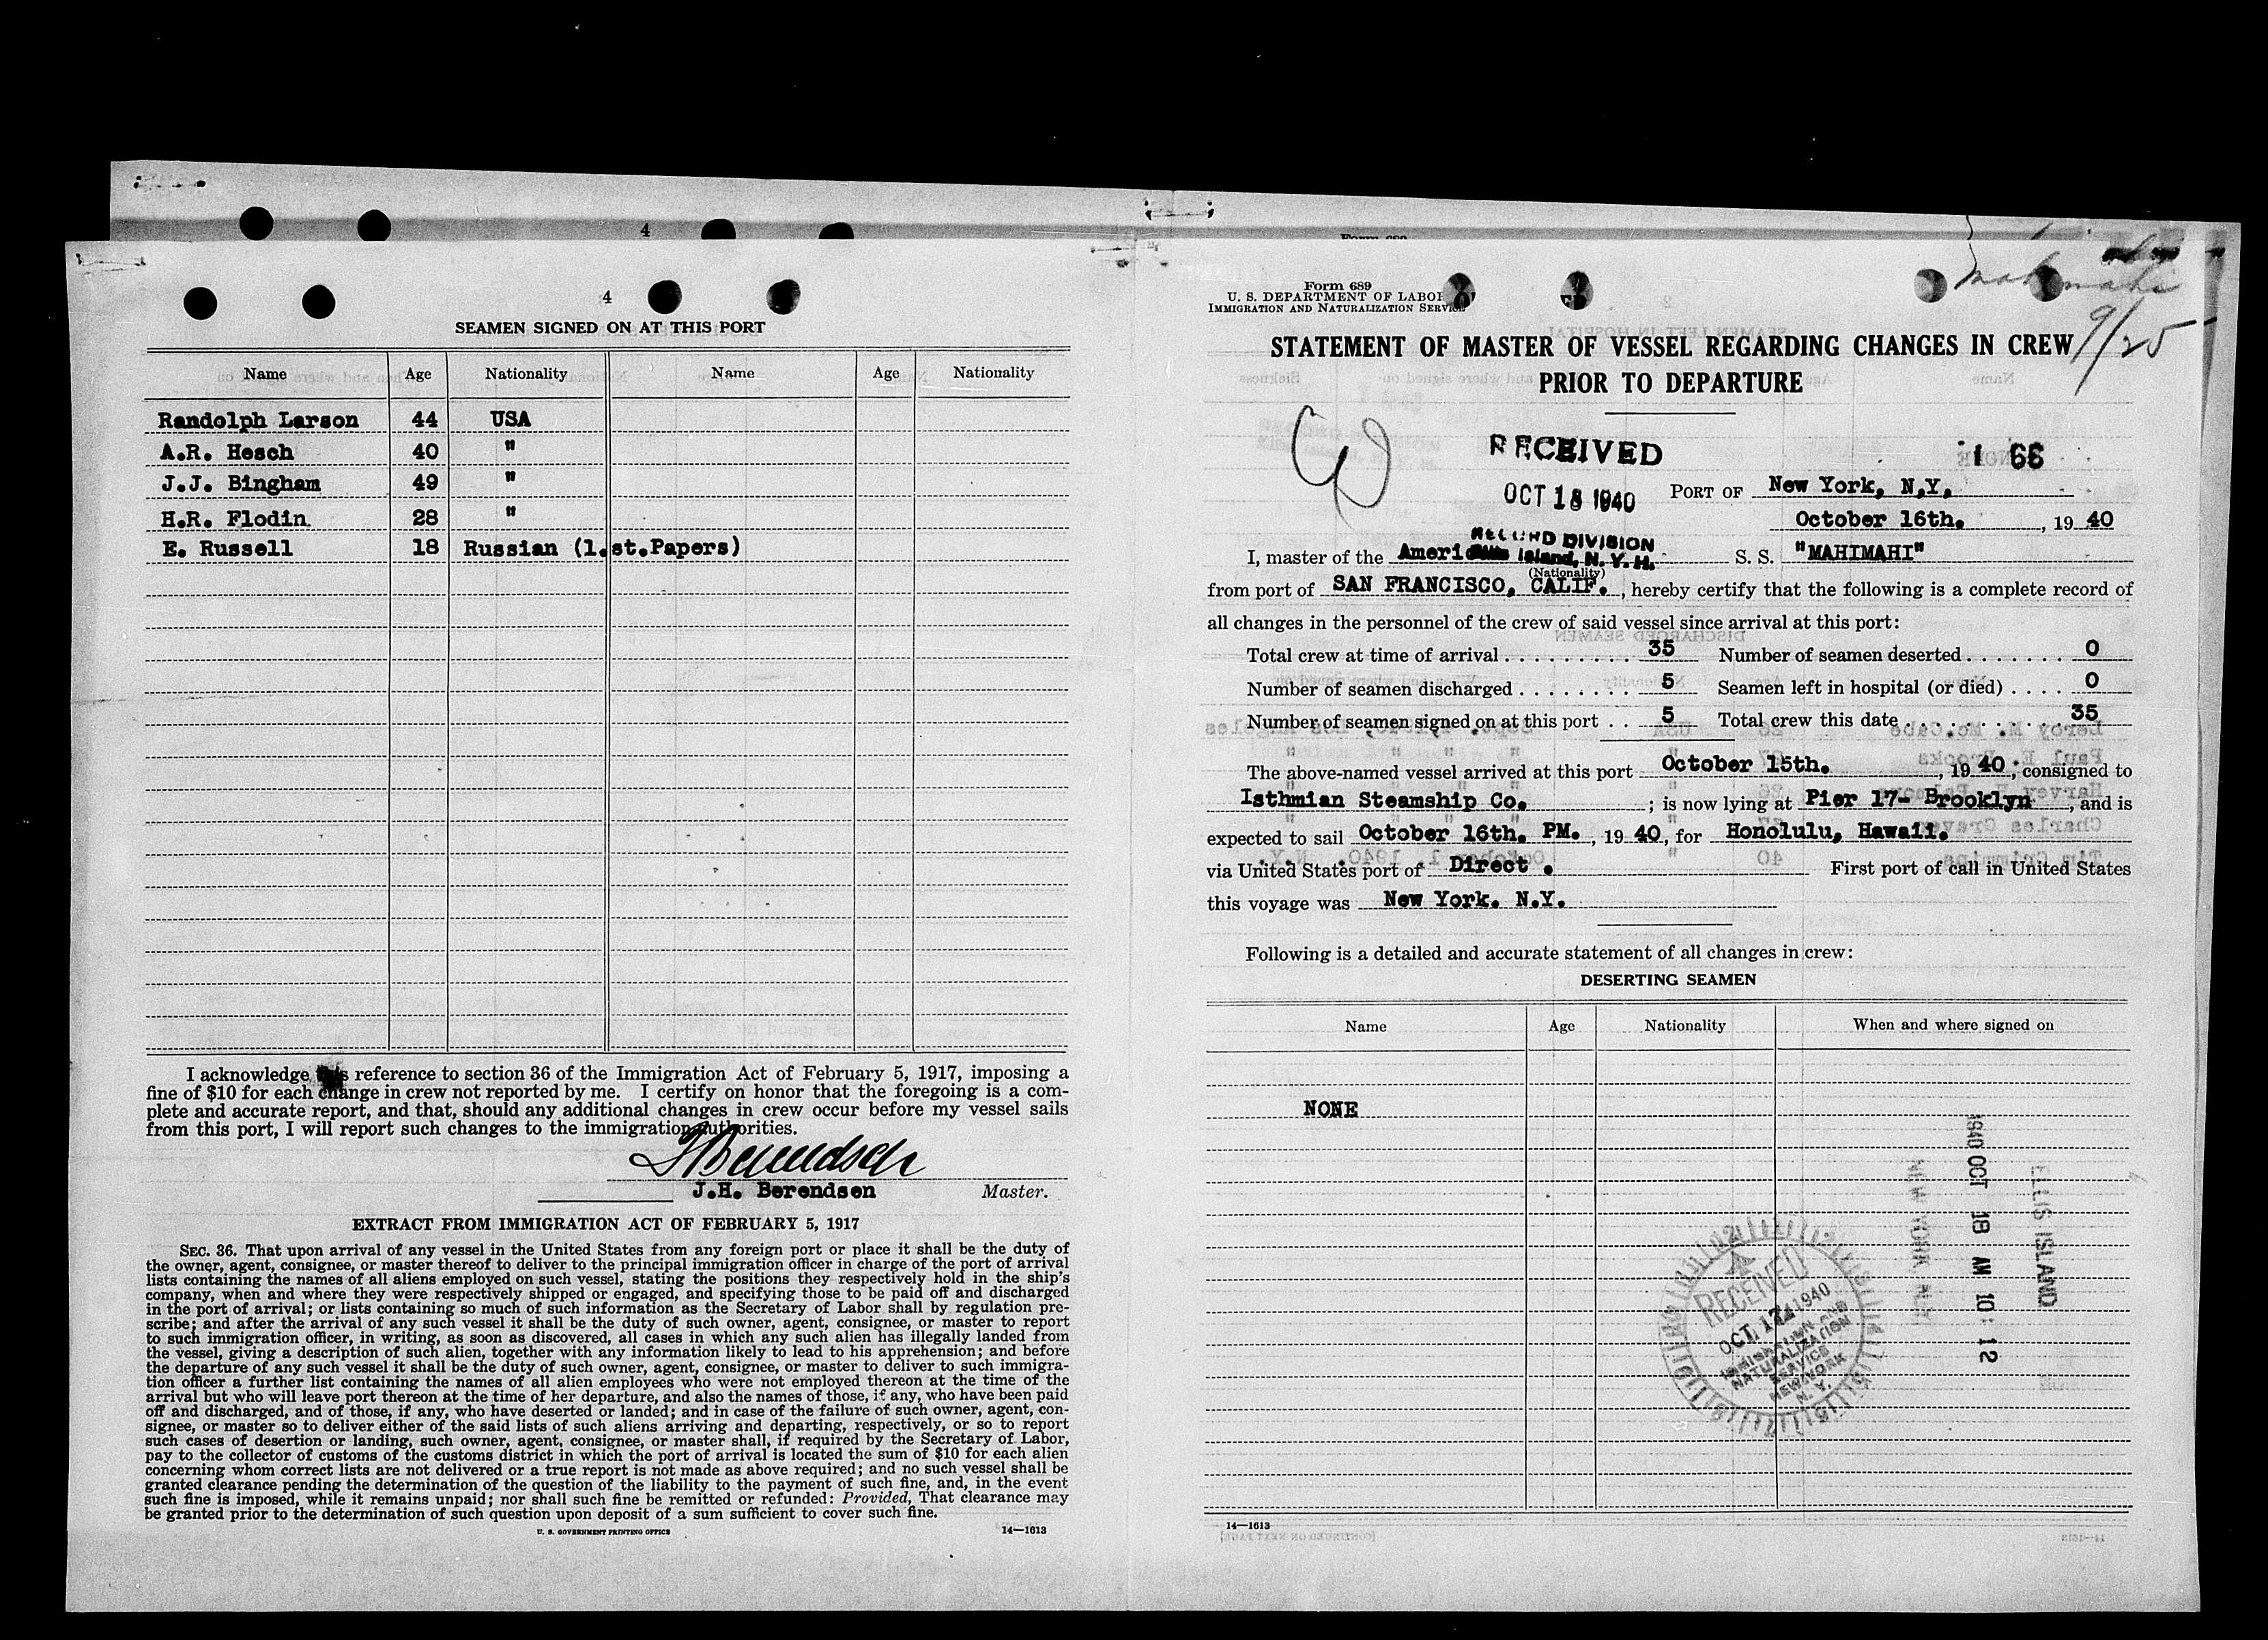 4
SEAMEN SIGNED ON AT THIS PORT
Name Age Nationality Name Age Nationality
Randolph Larson 44 USA
A.R. Hesch 40 "
J.J. Bingham 49 "
H.R. Flodin 28 "
E. Russell 18 Russian (1.st.Papers)
I acknowledge this reference to section 36 of the Immigration Act of February 5, 1917, imposing a
fine of $10 for each change in crew not reported by me. I certify on honor that the foregoing is a com-
plete and accurate report, and that, should any additional changes in crew occur before my vessel sails
from this port, I will report such changes to the immigration authorities.
JHBerendsen
J.H. Berendsen Master.
EXTRACT FROM IMMIGRATION ACT OF FEBRUARY 5, 1917
SEC. 36. That upon arrival of any vessel in the United States from any foreign port or place it shall be the duty of
the owner, agent, consignee, or master thereof to deliver to the principal immigration officer in charge of the port of arrival
lists containing the names of all aliens employed on such vessel, stating the positions they respectively hold in the ship's
company, when and where they were respectively shipped or engaged, and specifying those to be paid off and discharged
in the port of arrival; or lists containing so much of such information as the Secretary of Labor shall by regulation pre-
scribe; and after the arrival of any such vessel it shall be the duty of such owner, agent, consignee, or master to report
to such immigration officer, in writing, as soon as discovered, all cases in which any such alien has illegally landed from
the vessel, giving a description of such alien, together with any information likely to lead to his apprehension; and before
the departure of any such vessel it shall be the duty of such owner, agent, consignee, or master to deliver to such immigra-
tion officer a further list containing the names of all alien employees who were not employed thereon at the time of the
arrival but who will leave port thereon at the time of her departure, and also the names of those, if any, who have been paid
off and discharged, and of those, if any, who have deserted or landed; and in case of the failure of such owner, agent, con-
signee, or master so to deliver either of the said lists of such aliens arriving and departing, respectively, or so to report
such cases of desertion or landing, such owner, agent, consignee, or master shall, if required by the Secretary of Labor,
pay to the collector of customs of the customs district in which the port of arrival is located the sum of $10 for each alien
concerning whom correct lists are not delivered or a true report is not made as above required; and no such vessel shall be
granted clearance pending the determination of the question of the liability to the payment of such fine, and, in the event
such fine is imposed, while it remains unpaid; nor shall such fine be remitted or refunded: Provided, That clearance may
be granted prior to the determination of such question upon deposit of a sum sufficient to cover such fine.
U. S. GOVERNMENT PRINTING OFFICE 14—1613
4
Form 689
Form 689
U. S. DEPARTMENT OF LABOR
IMMIGRATION AND NATURALIZATION SERVICE
Mahimahi
9/25
STATEMENT OF MASTER OF VESSEL REGARDING CHANGES IN CREW
PRIOR TO DEPARTURE
RECEIVED
OCT 18 1940
RECORD DIVISION
Ellis Island, N. Y. H.
1 66
PORT OF New York, N.Y.
October 16th. , 19 40
I, master of the American S. S. "MAHIMAHI"
(Nationality)
from port of SAN FRANCISCO, CALIF. , hereby certify that the following is a complete record of
all changes in the personnel of the crew of said vessel since arrival at this port:
Total crew at time of arrival . . . . . . . . . 35 Number of seamen deserted . . . . . . . 0
Number of seamen discharged . . . . . . . . 5 Seamen left in hospital (or died) . . . . 0
Number of seamen signed on at this port . . 5 Total crew this date . . . . . . . . . . . 35
The above-named vessel arrived at this port October 15th. , 19 40 ; consigned to
Isthmian Steamship Co. ; is now lying at Pier 17- Brooklyn , and is
expected to sail October 16th. PM. , 19 40, for Honolulu, Hawaii.
via United States port of Direct . First port of call in United States
this voyage was New York. N.Y.
Following is a detailed and accurate statement of all changes in crew:
DESERTING SEAMEN
Name Age Nationality When and where signed on
NONE
1940 OCT 18 AM 10: 12
ELLIS ISLAND
NEW YORK
RECEIVED
OCT. 1940
IMMIGRATION AND
NATURALIZATION
SERVICE
NEW YORK
N. Y.
14—1613